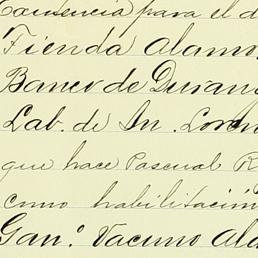 Existencia para el d
Tienda Alamo
Banco de Duran
Lab. de Sn. Loren
que hace Pascual R
como habilitación
Gan.º Vacuno Ala